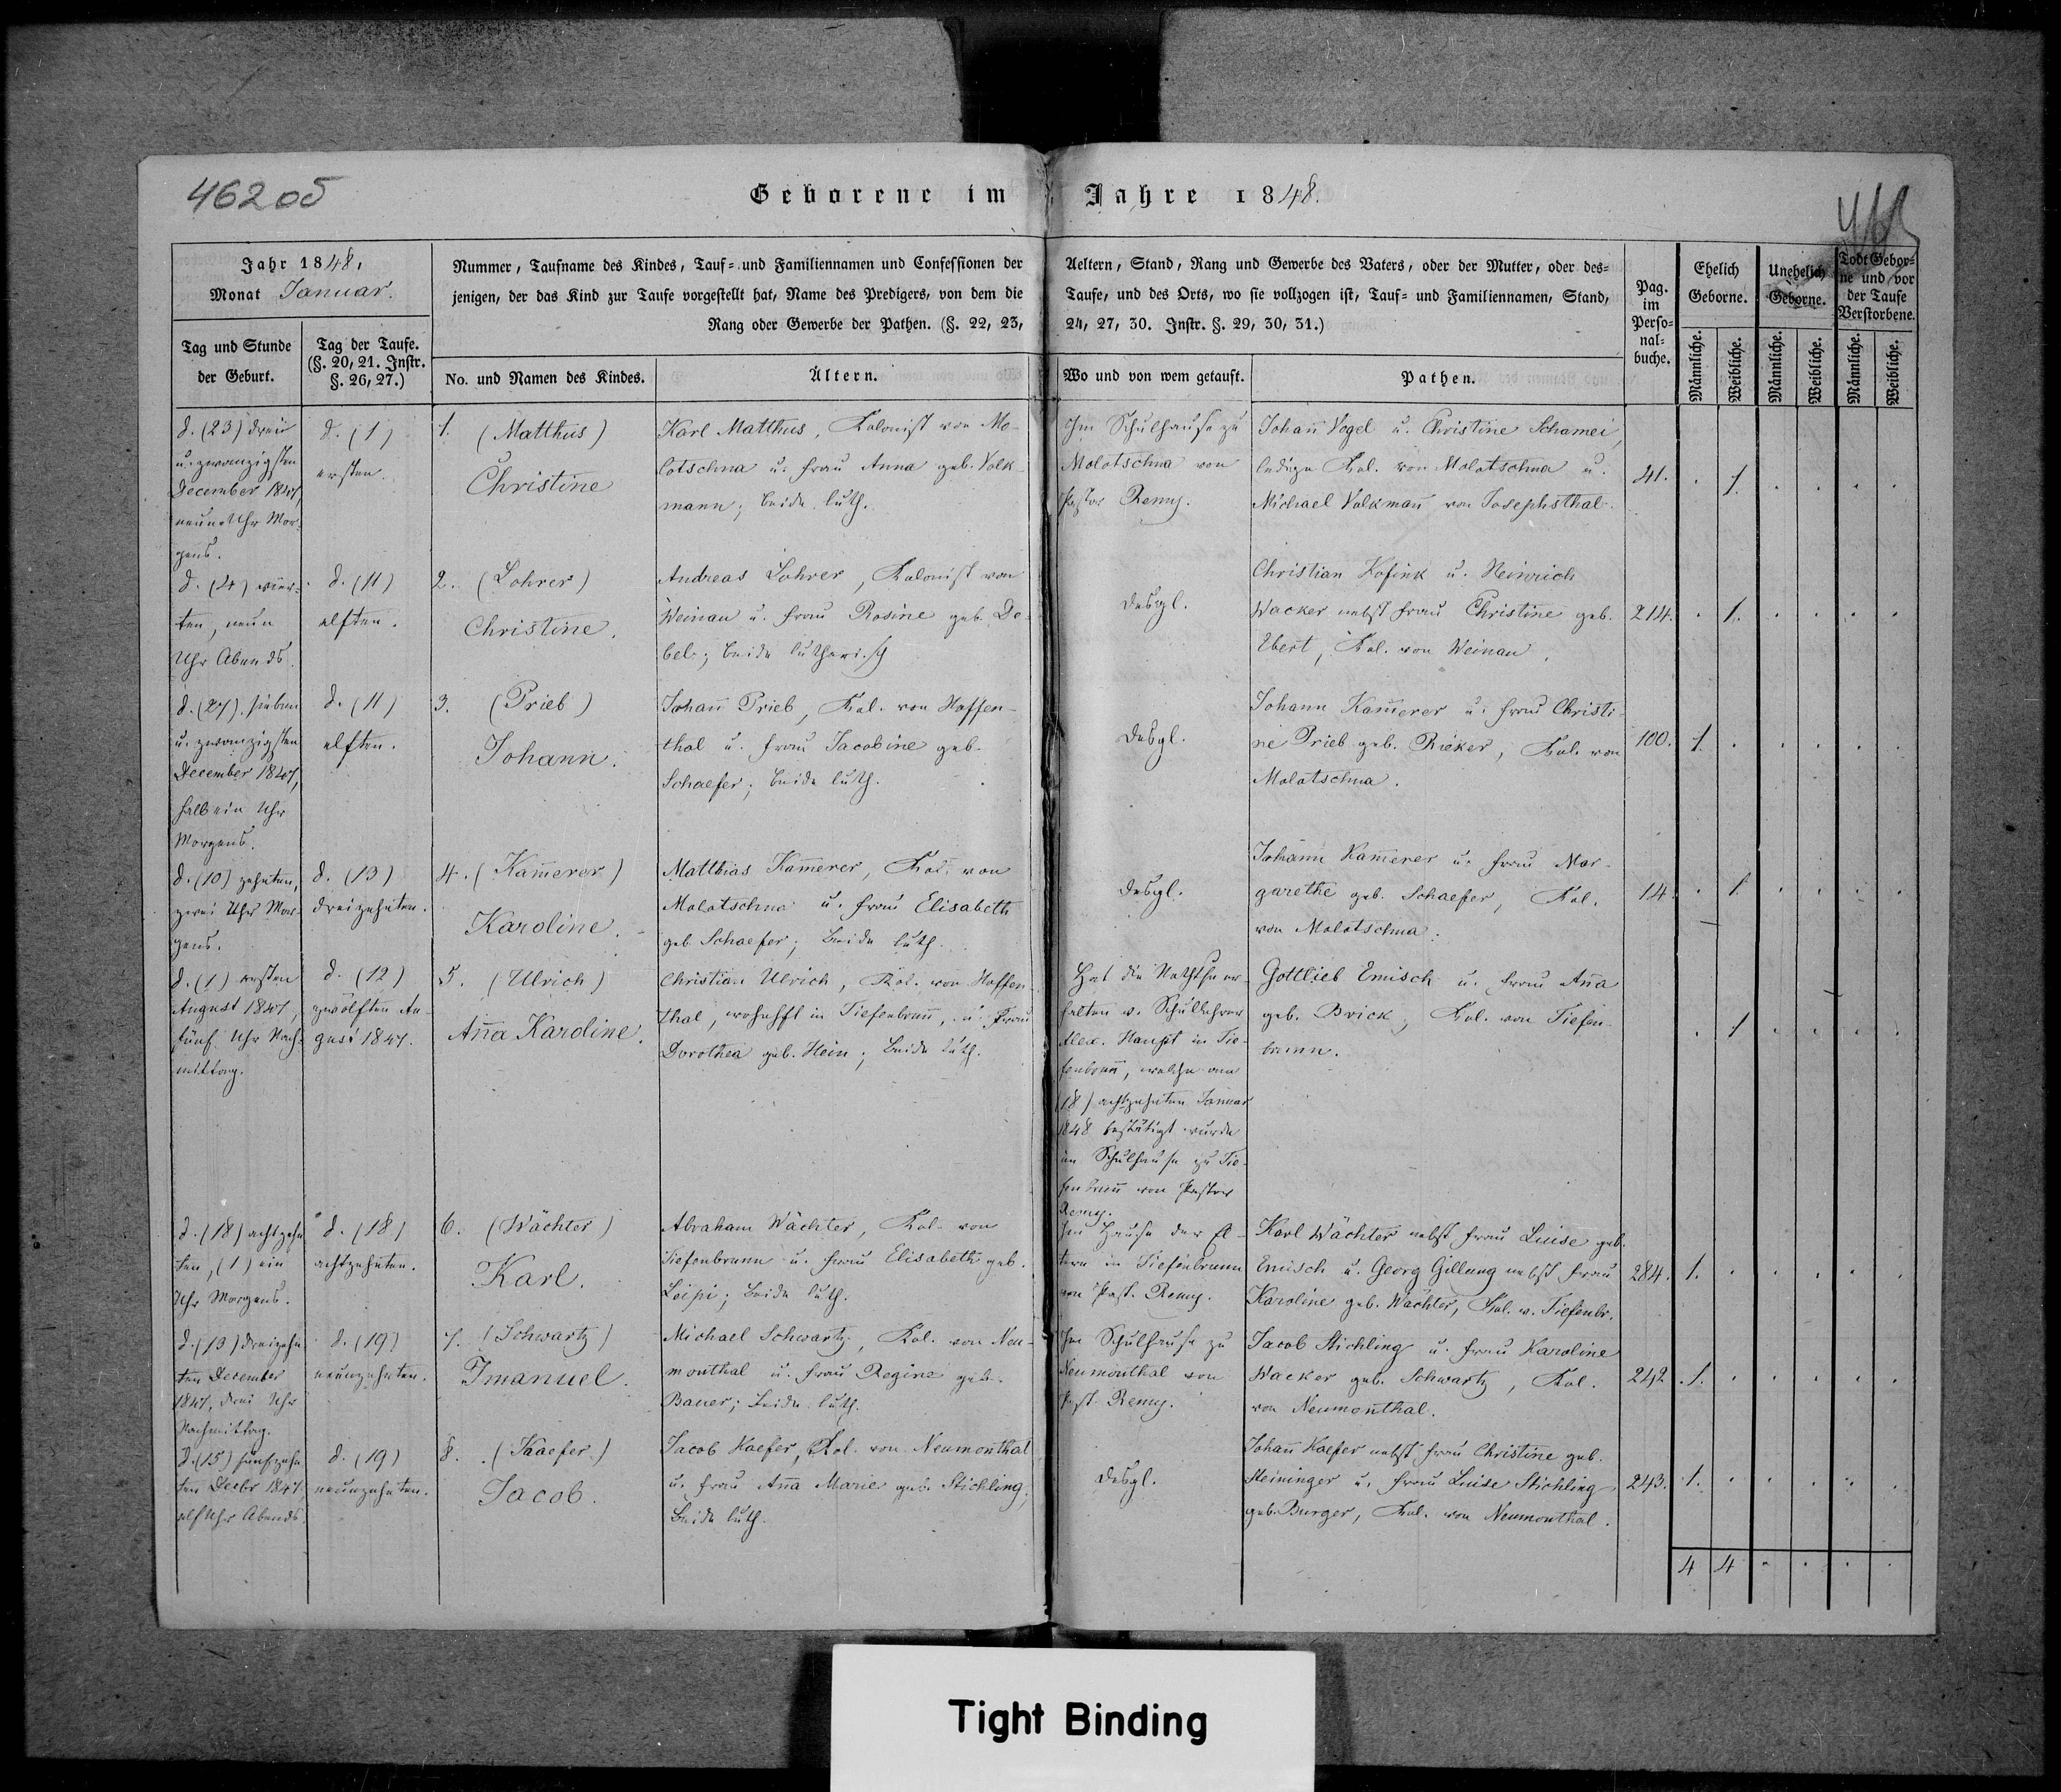 46205
Geborene im Jahre 1848.
Jahr 1848,
Monat Januar.
Tag und Stunde
der Geburt.
Tag der Taufe.
(§. 20, 21. Instr.
§. 26, 27.)
Nummer, Taufname des Kindes, Tauf- und Familiennamen und Confessionen der
jenigen, der das Kind zur Taufe vorgestellt hat, Name des Predigers, von dem die
Rang oder Gewerbe der Pathen. (§. 22, 23,
No. und Namen des Kindes.
Ältern.
Aeltern, Stand, Rang und Gewerbe des Vaters, oder der Mutter, oder des-
Taufe, und des Orts, wo sie vollzogen ist, Tauf- und Familiennamen, Stand,
24, 27, 30. Instr. §. 29, 30, 31.)
Wo und von wem getauft.
Pathen.
Pag.
im
Perso-
nal-
buche.
Ehelich
Geborne.
Unehelich
Geborne.
Todt Gebor-
ne und vor
der Taufe
Verstorbene.
Männliche.
Weibliche.
Männliche.
Weibliche.
Männliche.
Weibliche.
d. (23) drei
u. zwanzigsten
December 1847,
neun Uhr Mor-
gens.
d. (1)
ersten.
1. (Matthus)
Christine
Karl Matthus, Kolonist von Mo-
lotschna u. Frau Anna geb. Volk-
mann; beide luth.
Im Schulhause zu
Molotschna von
Pastor Remy.
Johañ Vogel u. Christine Schamei,
ledige Kol. von Molotschna u.
Michael Volkmañ von Josephsthal.
41. . 1. . . . .
d. (4) vier-
ten, neun
Uhr Abends.
d. (11)
elften.
2. (Lohrer)
Christine.
Andreas Lohrer, Kolonist von
Weinau u. Frau Rosine geb. De-
bel; beide lutherisch
desgl.
Christian Kofink u. Heinrich
Wacker nebst Frau Christine geb.
Ebert, Kol. von Weinau.
214. . 1. . . . .
d. (27). sieben
u. zwanzigsten
December 1847,
halb ein Uhr
Morgens.
d. (11)
elften.
3. (Prieb)
Johann.
Johañ Prieb, Kol. von Hoffen-
thal u. Frau Jacobine geb.
Schaefer; beide luth.
desgl.
Johann Kam̃erer u. Frau Christi-
ne Prieb geb. Rieker, Kol. von
Molotschna.
100. 1. . . . . .
d. (10) zehnten,
zwei Uhr Mor-
gens.
d. (13)
dreizehnten.
4. (Kam̃erer)
Karoline.
Matthias Kam̃erer, Kol. von
Molotschna u. Frau Elisabeth
geb. Schaefer; beide luth.
desgl.
Johann Kam̃erer u. Frau Mar-
garethe geb. Schaefer, Kol.
von Molotschna.
14. . 1. . . . .
d. (1) ersten
August 1847,
fünf Uhr Nach-
mittag.
d. (12)
zwölften Au-
gust 1847.
5. (Ulrich)
Añna Karoline.
Christian Ulrich, Kol. von Hoffen-
thal, wohnhft in Tiefenbrunn, u. Frau
Dorothea geb. Hein; beide luth.
Hat die Nothtfe er-
halten v. Schullehrer
Alex. Haupt in Tie-
fenbruñ, welche am
(18) achtzehnten Januar
1848 bestätigt wurde
im Schulhause zu Tie-
fenbruñ von Pastor
Remy.
Gottlieb Emisch u. Frau Aña
geb. Brick, Kol. von Tiefen-
brunn.
. 1 . . . .
d. (18) achtzehn
ten, (1) ein
Uhr Morgens.
d. (18)
achtzehnten.
6. (Wächter)
Karl.
Abraham Wächter, Kol. von
Tiefenbrunn u. Frau Elisabeth geb.
Leipi; beide luth.
Im Hause der El-
tern in Tiefenbrunn
von Past. Remy.
Karl Wächter nebst Frau Luise geb.
Emisch u. Georg Gillung nebst Frau
Karoline geb. Wächter, Kol. v. Tiefenbr.
284. 1. . . . . .
d. (13) dreizehn
ten December
1847, drei Uhr
Nachmittag.
d. (19)
neunzehnten.
7. (Schwartz)
Imanuel.
Michael Schwartz, Kol. von Neu-
monthal u. Frau Regine geb.
Bauer; beide luth.
Im Schulhause zu
Neumonthal von
Past. Remy.
Jacob Stichling u. Frau Karoline
Wacker geb. Schwartz, Kol.
von Neumonthal.
242 . 1. . . . . .
d. (15) fünfzehn
ten Decbr 1847,
elf Uhr Abends
d. (19)
neunzehnten.
8. (Kaefer)
Jacob.
Jacob Kaefer, Kol. von Neumonthal
u. Frau Aña Marie geb. Stichling;
beide luth.
desgl.
Johañ Kaefer nebst Frau Christine geb.
Steininger u. Frau Luise Stichling
geb. Burger, Kol. von Neumonthal.
243. 1. . . . . .
4 4 . . . .
Tight Binding